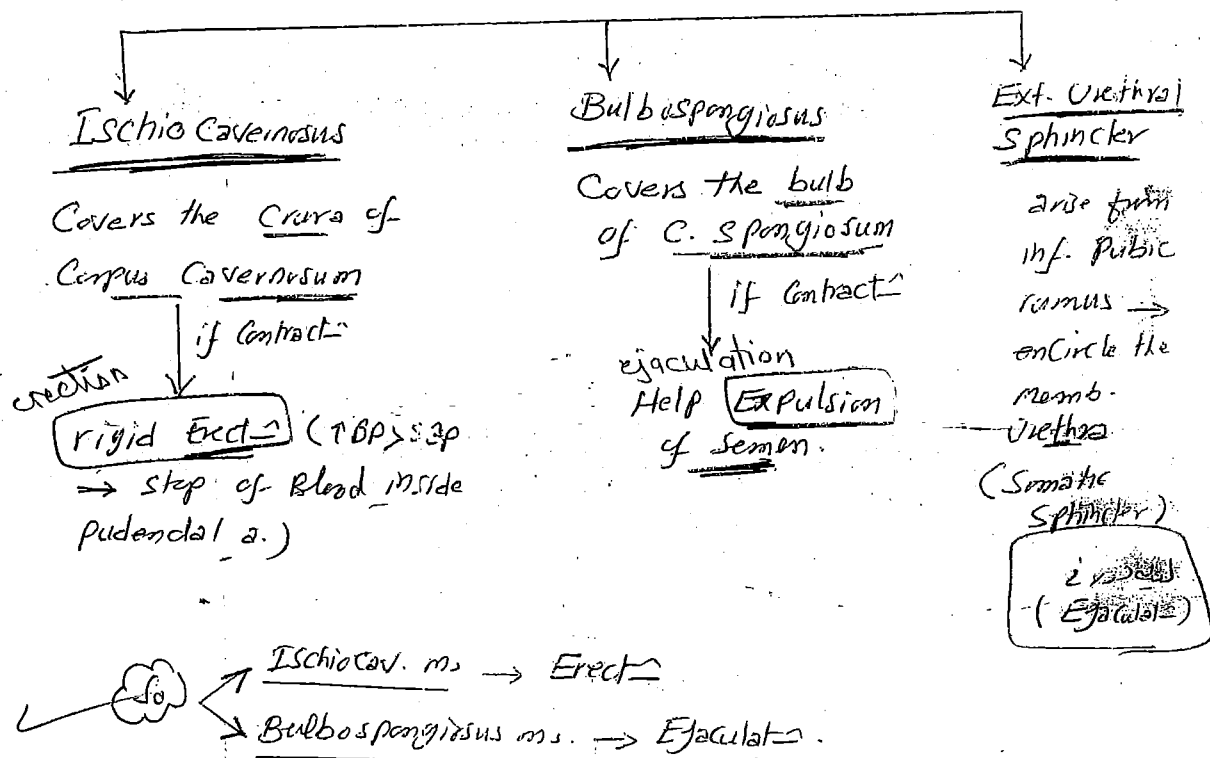 Ischio Cavernosus
Covers the Crura of
Corpus Cavernosum
if Contract
erection
rigid Erect (↑BP > SBP
→ Stop of Blood inside
Pudendal a.)
Bulbospongiosus
Covers the bulb
of C. Spongiosum
if Contract
ejaculation
Help Expulsion
of Semen.
Ext. Urethral
Sphincter
arise from
inf. Pubic
ramus →
enCircle the
memb.
Urethra
(Somatic
Sphincter)
(Ejaculat)
So
IschioCav. ms → Erect
Bulbospongiosus ms. → Ejaculat.